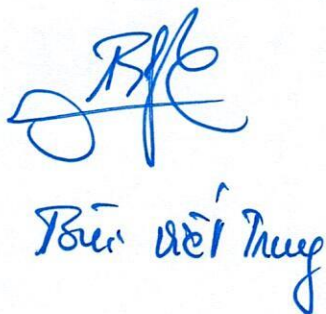 Bùi Việt Trung